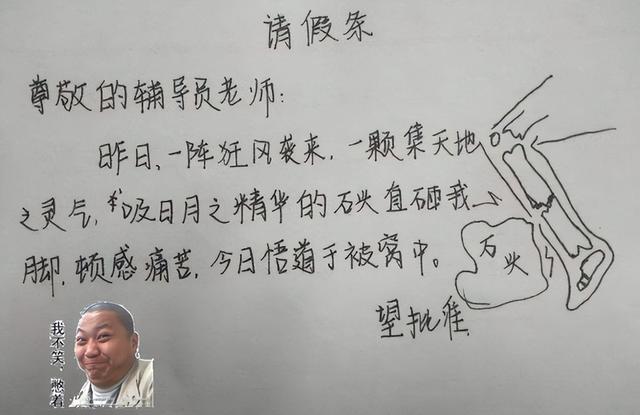 请假条
尊敬的辅导员老师:
昨日,一阵狂风袭来,一颗集天地
之灵气,吸日月之精华的石头直砸我
脚,顿感痛苦,今日悟道于被窝中。
望批准
石头
我不笑,憋着